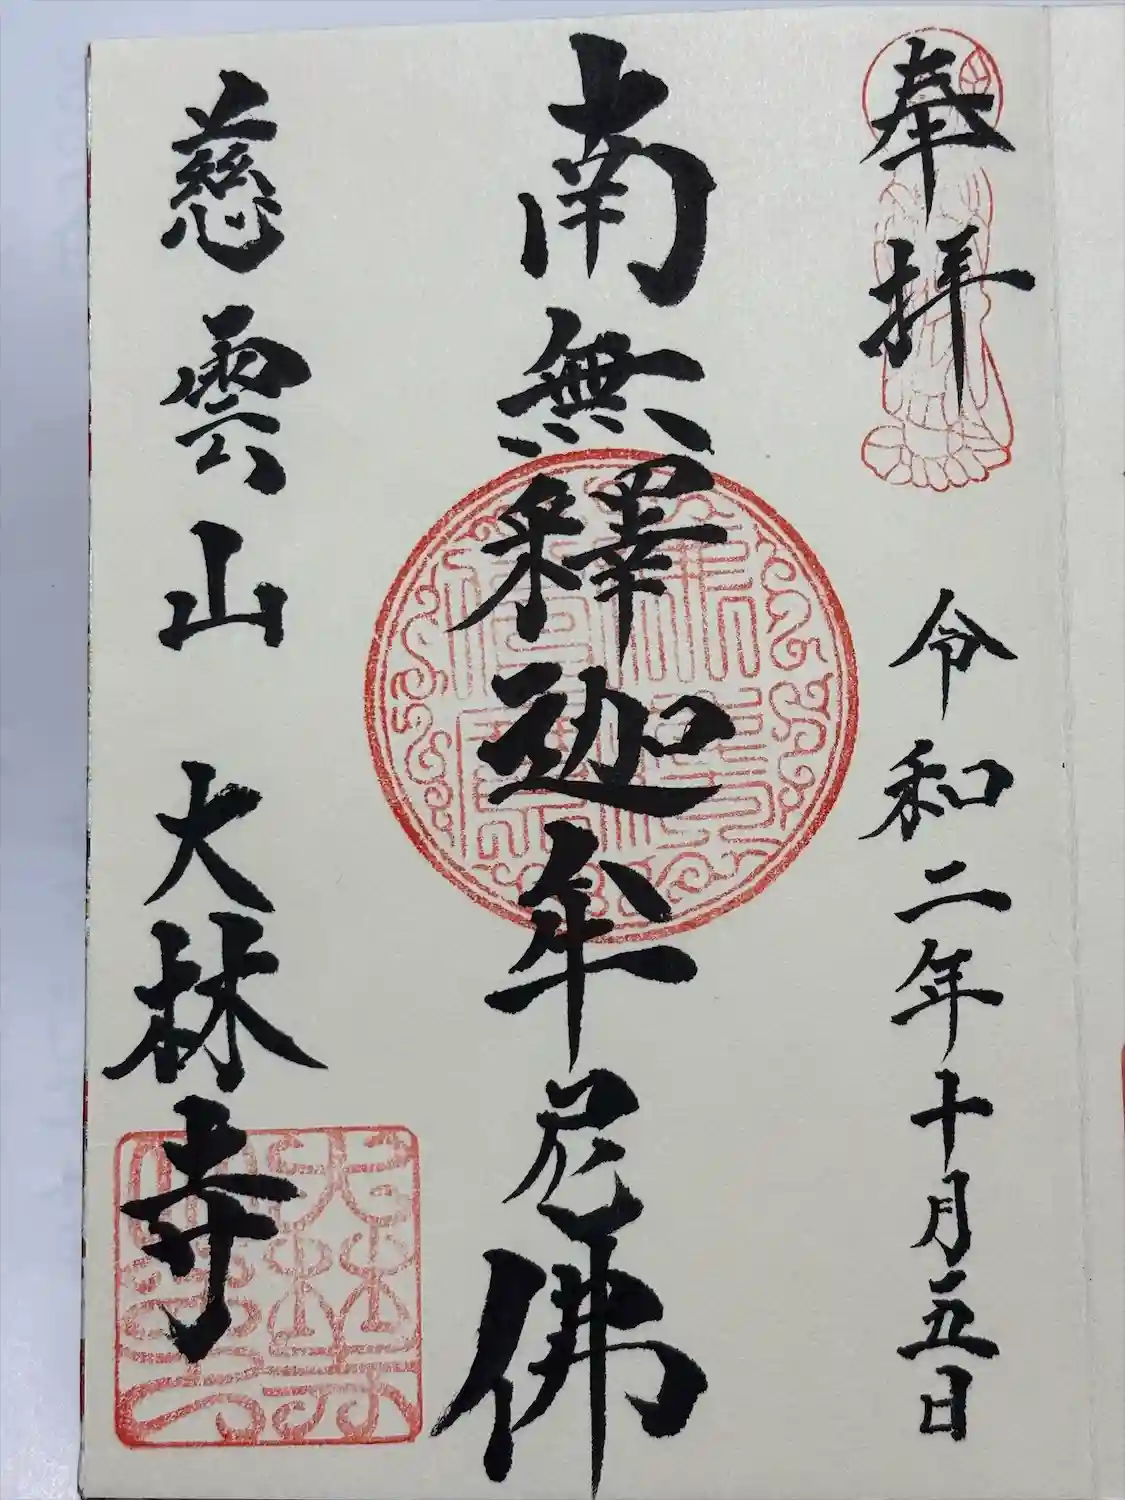 奉拝 令和二年十月五日
南無釋迦牟尼佛
慈雲山 大林寺